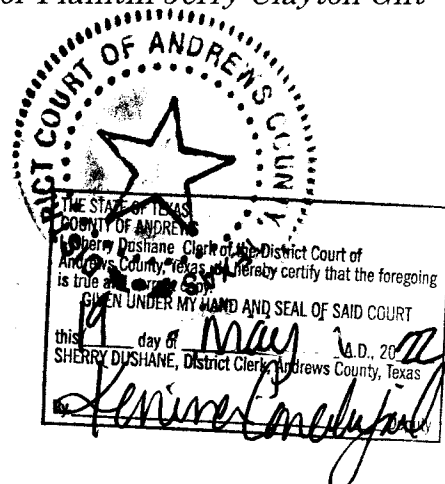 or Plaintiff Jerry Clayton Gift
DISTRICT COURT OF ANDREWS COUNTY
THE STATE OF TEXAS
COUNTY OF ANDREWS
I, Sherry Dushane Clerk of the District Court of
Andrews County, Texas, do hereby certify that the foregoing
is true and correct copy.
GIVEN UNDER MY HAND AND SEAL OF SAID COURT
this 19 day of May A.D., 2022
SHERRY DUSHANE, District Clerk, Andrews County, Texas
By Deputy